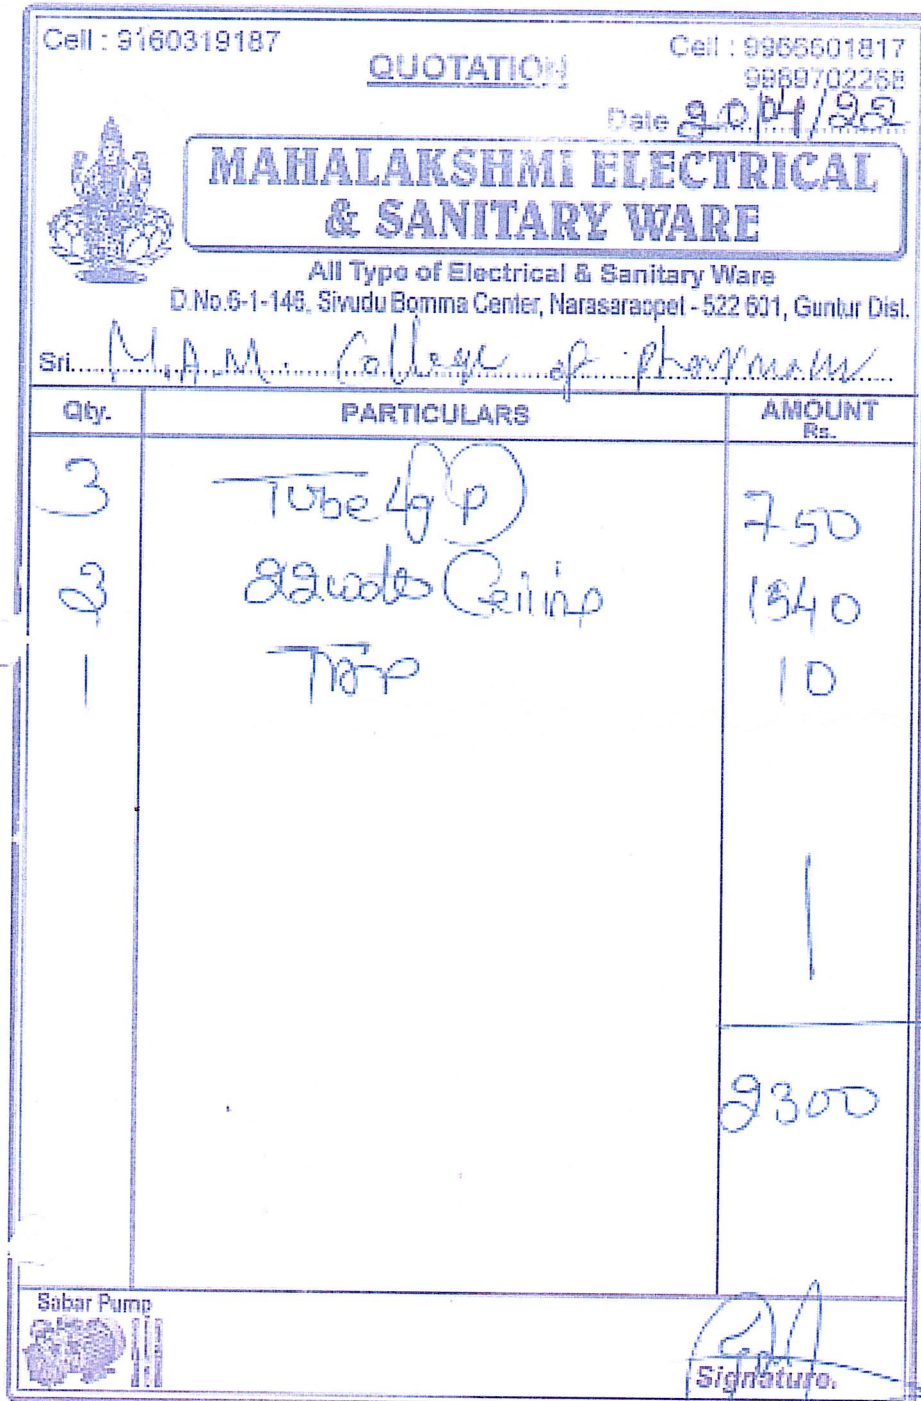 Cell : 9160319187
Cell : 9966601817
QUOTATION
9989702268
Date 20/04/22
MAHALAKSHMI ELECTRICAL
& SANITARY WARE
All Type of Electrical & Sanitary Ware
D.No.6-1-146, Sivudu Bomma Center, Narasaraopet - 522 601, Guntur Dist.
Sri. M.A.M. College of
Qty. PARTICULARS AMOUNT
Rs.
3 Tube 750
2 22 watts Ceiling 1540
1 Tap 10
2300
Sabar Pump
Signature.